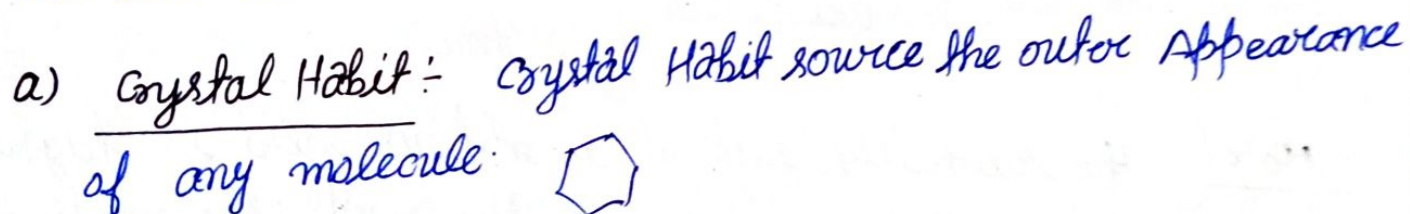 a) Crystal Habit :- Crystal Habit source the outer Appearance
of any molecule.